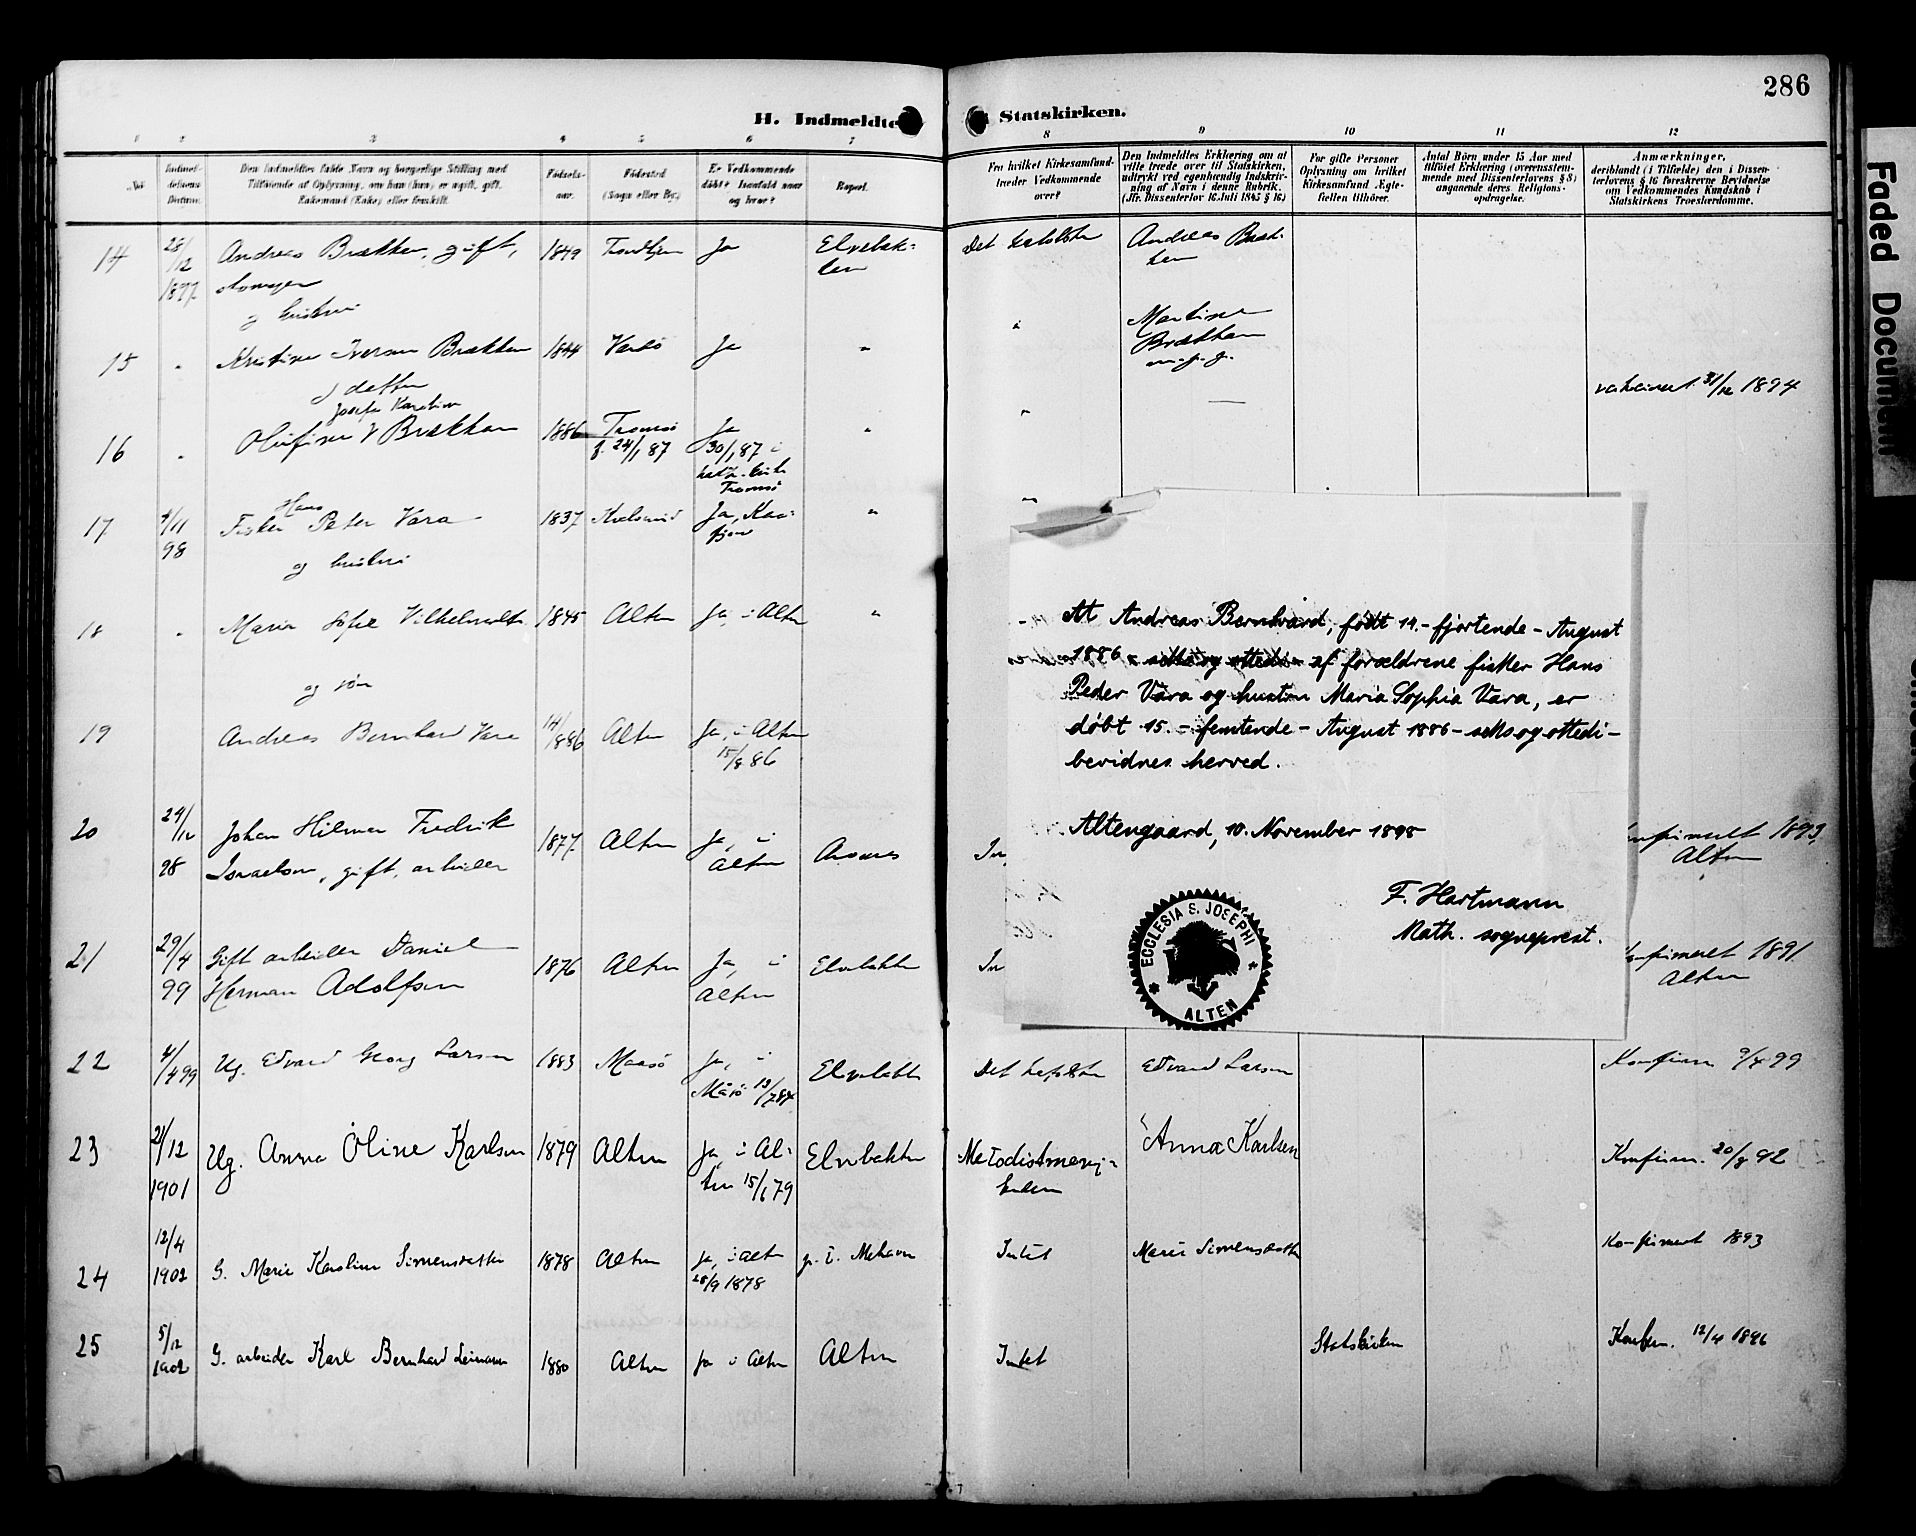 286
H. Indmeldte
Statskirken.
1 2 3 4 5 6 7 8 9 10 11 12
No.
Indmel-
delsens
Datum.
Den Indmeldtes fulde Navn og borgerlige Stilling med
Tilføiende af Oplysning, om han (hun) er ugift, gift,
Enkemand (Enke) eller fraskilt.
Fødsels-
aar.
Fødested
(Sogn eller By.)
Er Vedkommende
døbt? Isaafald naar
og hvor?
Bopæl.
Fra hvilket Kirkesamfund
træder Vedkommende
over?
Den Indmeldtes Erklæring om at
ville træde over til Statskirken,
udtrykt ved egenhændig Indskriv-
ning af Navn i denne Rubrik.
(Jfr. Dissenterlov 16. Juli 1845 § 16.)
For gifte Personer
Oplysning om hvilket
Kirkesamfund Ægte-
fællen tilhører.
Antal Børn under 15 Aar med
tilføiet Erklæring (overensstem-
mende med Dissenterlovens § 8)
angaaende deres Religions-
opdragelse.
Anmærkninger,
deriblandt (i Tilfælde) den i Dissen-
terlovens § 16 foreskrevne Bevidnelse
om Vedkommendes Kundskab i
Statskirkens Troeslærdomme.
14 28/12 1897 Andreas Brækkan, gift, 1849 Trondhjem Ja Elvebak-
ken
Det katolske Andreas Bræk-
ken
og hustru
15 " Kristine Iversen Brækkan 1844 Vardö Ja "
" Martine
Brækkan
m. p. p.
og datter
Josefa Karoline
16 " Olufine V Brækkan 1886 Tromsö Ja "
f. 24/1 87 30/1 87 i
kath. kirke
Tromsö
" — vakcinert 31/12 1894
17 4/11 98 Fisker Hans Peter Vara 1837 Kvalsund Ja, Kaa-
fjord "
og hustru
18 " Maria Sofie Vilhelmsdtr 1845 Alten Ja i Alten "
og søn
19 Andreas Bernhard Vara 14/ 1886 Alten Ja, i Alten
15/8 86
20 24/12 98 Johan Hilmar Fredrik
Israelsen, gift, arbeider 1877 Alten Ja, i
Alten Aronnes
In
nfirmert 1893
Alten
21 29/4 99 Gift arbeider Daniel
Herman Adolfsen 1876 Alten Ja, i
Alten Elvebakken
In
onfirmert 1891
Alten
22 4/4 99 Ug. Edvard Georg Larsen 1883 Maasö Ja, i
Måsö 13/7 84 Elvebakken
Det katolske Edvard Larsen Konfirm 9/4 99
23 21/12 1901 Ug. Anna Oline Karlsen 1879 Alten Ja i Al-
ten 15/6 79 Elvebakken
Metodistmenig-
heden Anna Karlsen Konfirm. 20/8 92
24 12/4 1902 G. Marie Karoline Simensdatter 1878 Alten Ja, i Alten
28/9 1878 p. t. Mehavn
Intet Marie Simensdatter Konfirmert 1893
25 5/12 1902 G. arbeider Karl Bernhard 1880 Alten Ja i Alten Alten
Intet Statskirken Konfirm. 1896
At Andreas Bernhard, født 14.- fjortende - August
1886 - seks og ottedi - af forældrene fisker Hans
Peder Vara og hustru Maria Sophia Vara, er
døbt 15. - femtende - August 1886 - seks og ottedi -
bevidnes herved.
Altengaard, 10. November 1898
F. Hartmann
Kath. sogneprest.
ECCLESIA S. JOSEPHI
* ALTEN *
Faded Document